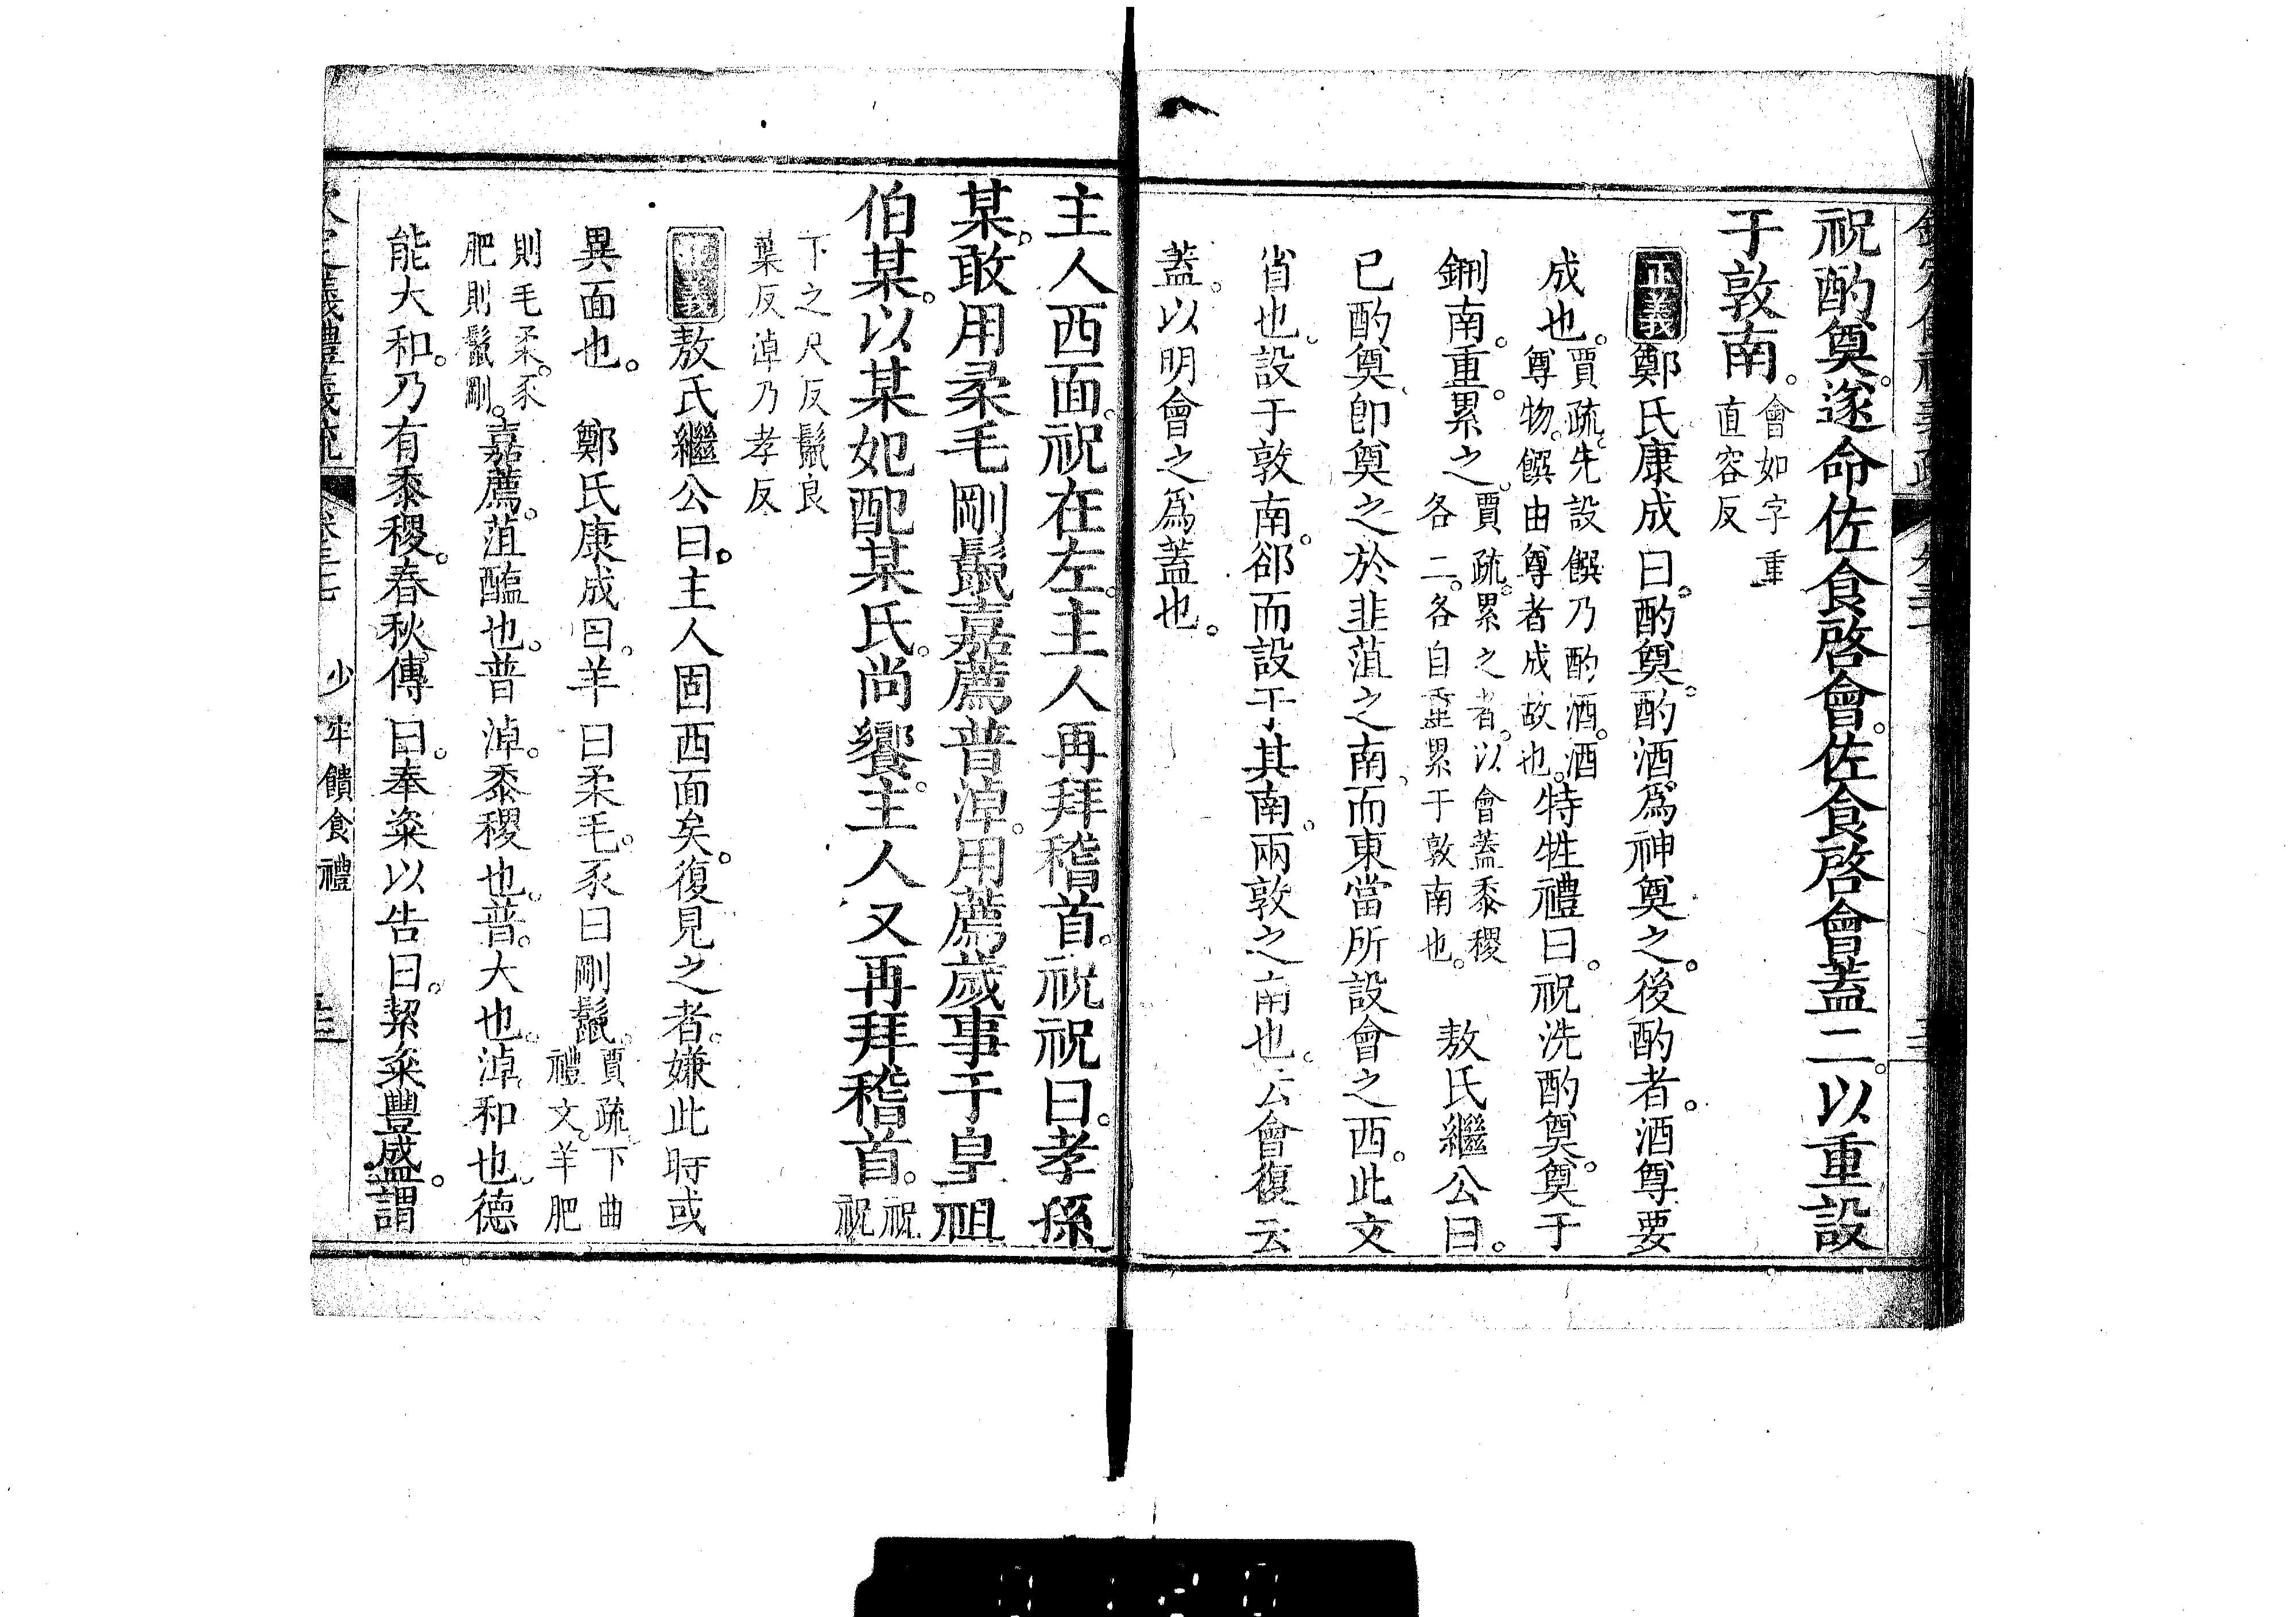 祝酌奠。遂命佐食啓會。佐食啓會蓋二。以重設
于敦南。會如字重
直容反
正義鄭氏康成曰。酌奠。酌酒。爲神奠之。後酌者。酒尊要
成也。賈疏。先設饌乃酌酒。酒
尊物。饌由尊者成故也。特牲禮曰。祝洗酌奠。奠于
鉶南。重。累之。賈疏。累之者。以會蓋黍稷
各二。各自重累于敦南也。敖氏繼公曰。
已酌奠、卽奠之於韭菹之南、而東當所設會之西。此文
省也。設于敦南。郤而設于其南。兩敦之南也。云會復云
蓋。以明會之爲蓋也。
主人西面。祝在左。主人再拜稽首。祝祝曰。孝孫
某。敢用柔毛剛鬣嘉薦普淖。用薦歲事于皇祖
伯某。以某妃配某氏。尚饗。主人又再拜稽首。祝祝
下之尺反鬣良
葉反淖乃孝反
正義敖氏繼公曰。主人固西面矣。復見之者。嫌此時或
異面也。鄭氏康成曰。羊曰柔毛。豕曰剛鬣。賈疏下曲
禮文。羊肥
則毛柔。豕
肥則鬣剛。嘉薦。菹醢也。普淖。黍稷也。普。大也。淖。和也。德
能大和。乃有黍稷。春秋傳曰。奉粢以告曰。絜粢豐盛。謂
欽定儀禮義疏 卷三七 少牢饋食禮